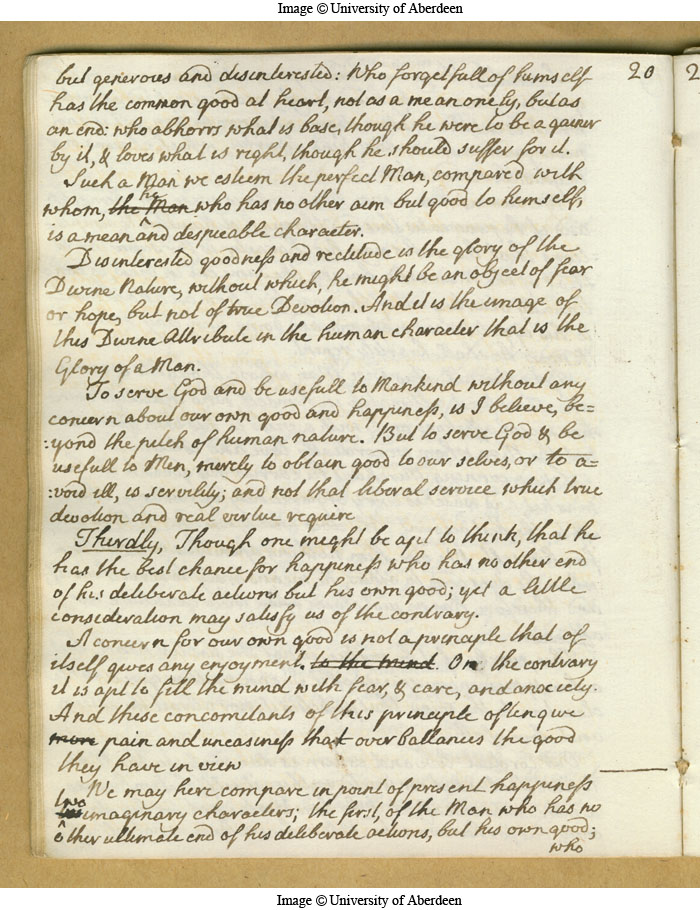 Image © University of Aberdeen
20
2
but generous and disinterested: Who forgetfull of himself
has the common good at heart, not as a mean onely, but as
an end: who abhorrs what is base, though he were to be a gainer
by it, & loves what is right, though he should suffer for it.
Such a Man we esteem the perfect Man, compared with
whom, the Man he who has no other aim but good to himself,
is a mean and despicable character.
Disinterested goodness and rectitude is the glory of the
Divine Nature, without which, he might be an object of fear
or hope, but not of true Devotion. And it is the image of
this Divine Attribute in the human character that is the
Glory of a Man.
To serve God and be usefull to Mankind without any
concern about our own good and happiness, is I believe, be=
:yond the pitch of human nature. But to serve God & be
usefull to Men, merely to obtain good to our selves, or to a=
:void ill, is servility; and not that liberal service which true
devotion and real virtue require
Thirdly, Though one might be apt to think, that he
has the best chance for happiness who has no other end
of his deliberate actions but his own good; yet a little
consideration may satisfy us of the contrary.
A concern for our own good is not a principle that of
itself gives any enjoyment. to the mind. On the contrary
it is apt to fill the mind with fear, & care, and anxiety.
And these concomitants of this principle often give
more pain and uneasiness that overballances the good
they have in view
We may here compare in point of present happiness
two imaginary characters; the first, of the Man who has no
other ultimate end of his deliberate actions, but his own good;
who
Image © University of Aberdeen